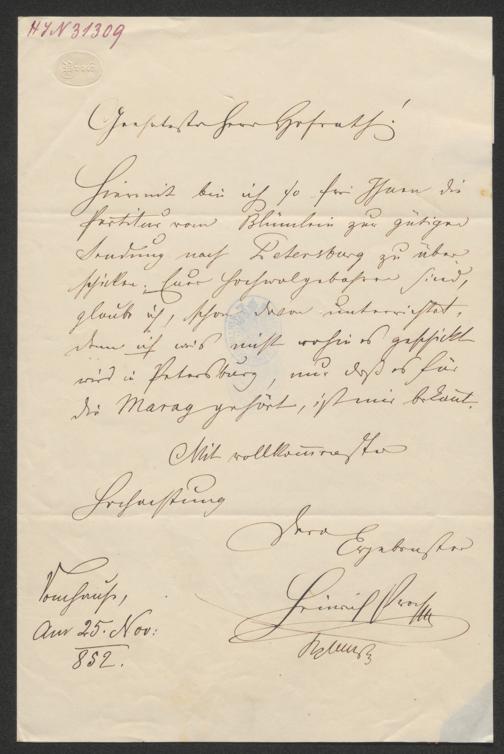 HIN 31309
Geehrtester Herr Hofrath!
Hiermit bin ich so frei Ihnen die
Partitur vom Blümlein zur gütigen
Sendung nach Petersburg zu über-
schicken. Euer Hochwolgebohren sind,
glaube ich, schon davon unterrichtet,
denn ich weis nicht wohin es geschickt
wird in Petersburg, nur daß es für
die Maray gehört, ist mir bekant.
Mit vollkommenster
Hochachtung
Dero
Ergebenster
Heinrich Proch
Vom Hause,
Am 25. Nov:
852.